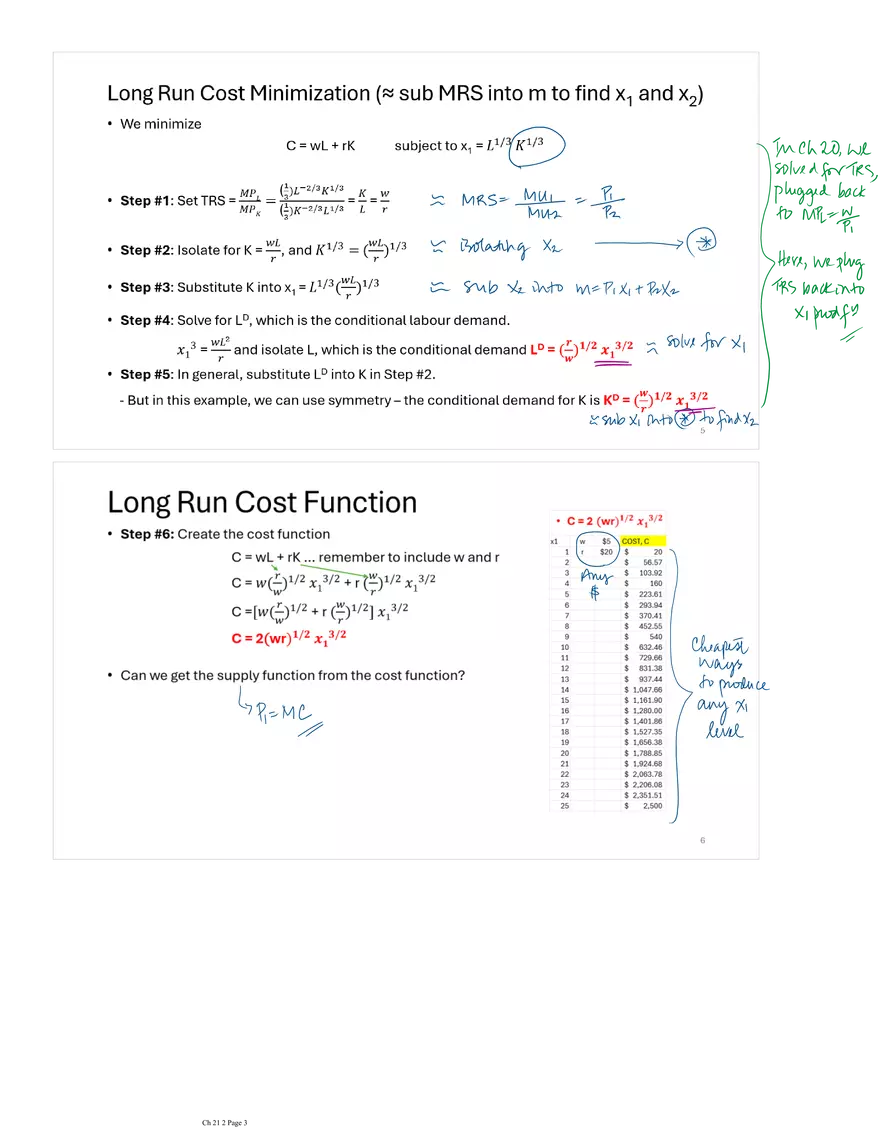 Long Run Cost Minimization (≈ sub MRS into m to find x₁ and x₂)
• We minimize
C = wL + rK subject to x₁ = L^{1/3} K^{1/3}
• Step #1: Set TRS = MP_L/MP_K = (1/3)L^{-2/3}K^{1/3} / (1/3)K^{-2/3}L^{1/3} = K/L = w/r ≈ MRS = MU1/MU2 = P1/P2
• Step #2: Isolate for K = wL/r, and K^{1/3} = (wL/r)^{1/3} ≈ Isolating X2 → ⊛
• Step #3: Substitute K into x₁ = L^{1/3}(wL/r)^{1/3} ≈ sub X2 into m = P1X1 + P2X2
• Step #4: Solve for L^D, which is the conditional labour demand.
x₁³ = wL²/r and isolate L, which is the conditional demand L^D = (r/w)^{1/2} x₁^{3/2} ≈ solve for X1
• Step #5: In general, substitute L^D into K in Step #2.
- But in this example, we can use symmetry – the conditional demand for K is K^D = (w/r)^{1/2} x₁^{3/2}
≈ sub X1 into ⊛ to find X2
5
In Ch 20, we
solved for TRS,
plugged back
to MPL = w/P1
Here, we plug
TRS back into
X1 prod fⁿ
Long Run Cost Function
• Step #6: Create the cost function
C = wL + rK ... remember to include w and r
C = w(r/w)^{1/2} x₁^{3/2} + r (w/r)^{1/2} x₁^{3/2}
C =[w(r/w)^{1/2} + r (w/r)^{1/2}] x₁^{3/2}
C = 2(wr)^{1/2} x₁^{3/2}
• Can we get the supply function from the cost function?
↳ P1 = MC
• C = 2 (wr)^{1/2} x₁^{3/2}
x1 w $5 COST, C
1 r $20 $ 20
2 $ 56.57
3 $ 103.92
4 $ 160
5 $ 223.61
6 $ 293.94
7 $ 370.41
8 $ 452.55
9 $ 540
10 $ 632.46
11 $ 729.66
12 $ 831.38
13 $ 937.44
14 $ 1,047.66
15 $ 1,161.90
16 $ 1,280.00
17 $ 1,401.86
18 $ 1,527.35
19 $ 1,656.38
20 $ 1,788.85
21 $ 1,924.68
22 $ 2,063.78
23 $ 2,206.08
24 $ 2,351.51
25 $ 2,500
Any
$
Cheapest
ways
to produce
any X1
level
6
Ch 21 2 Page 3